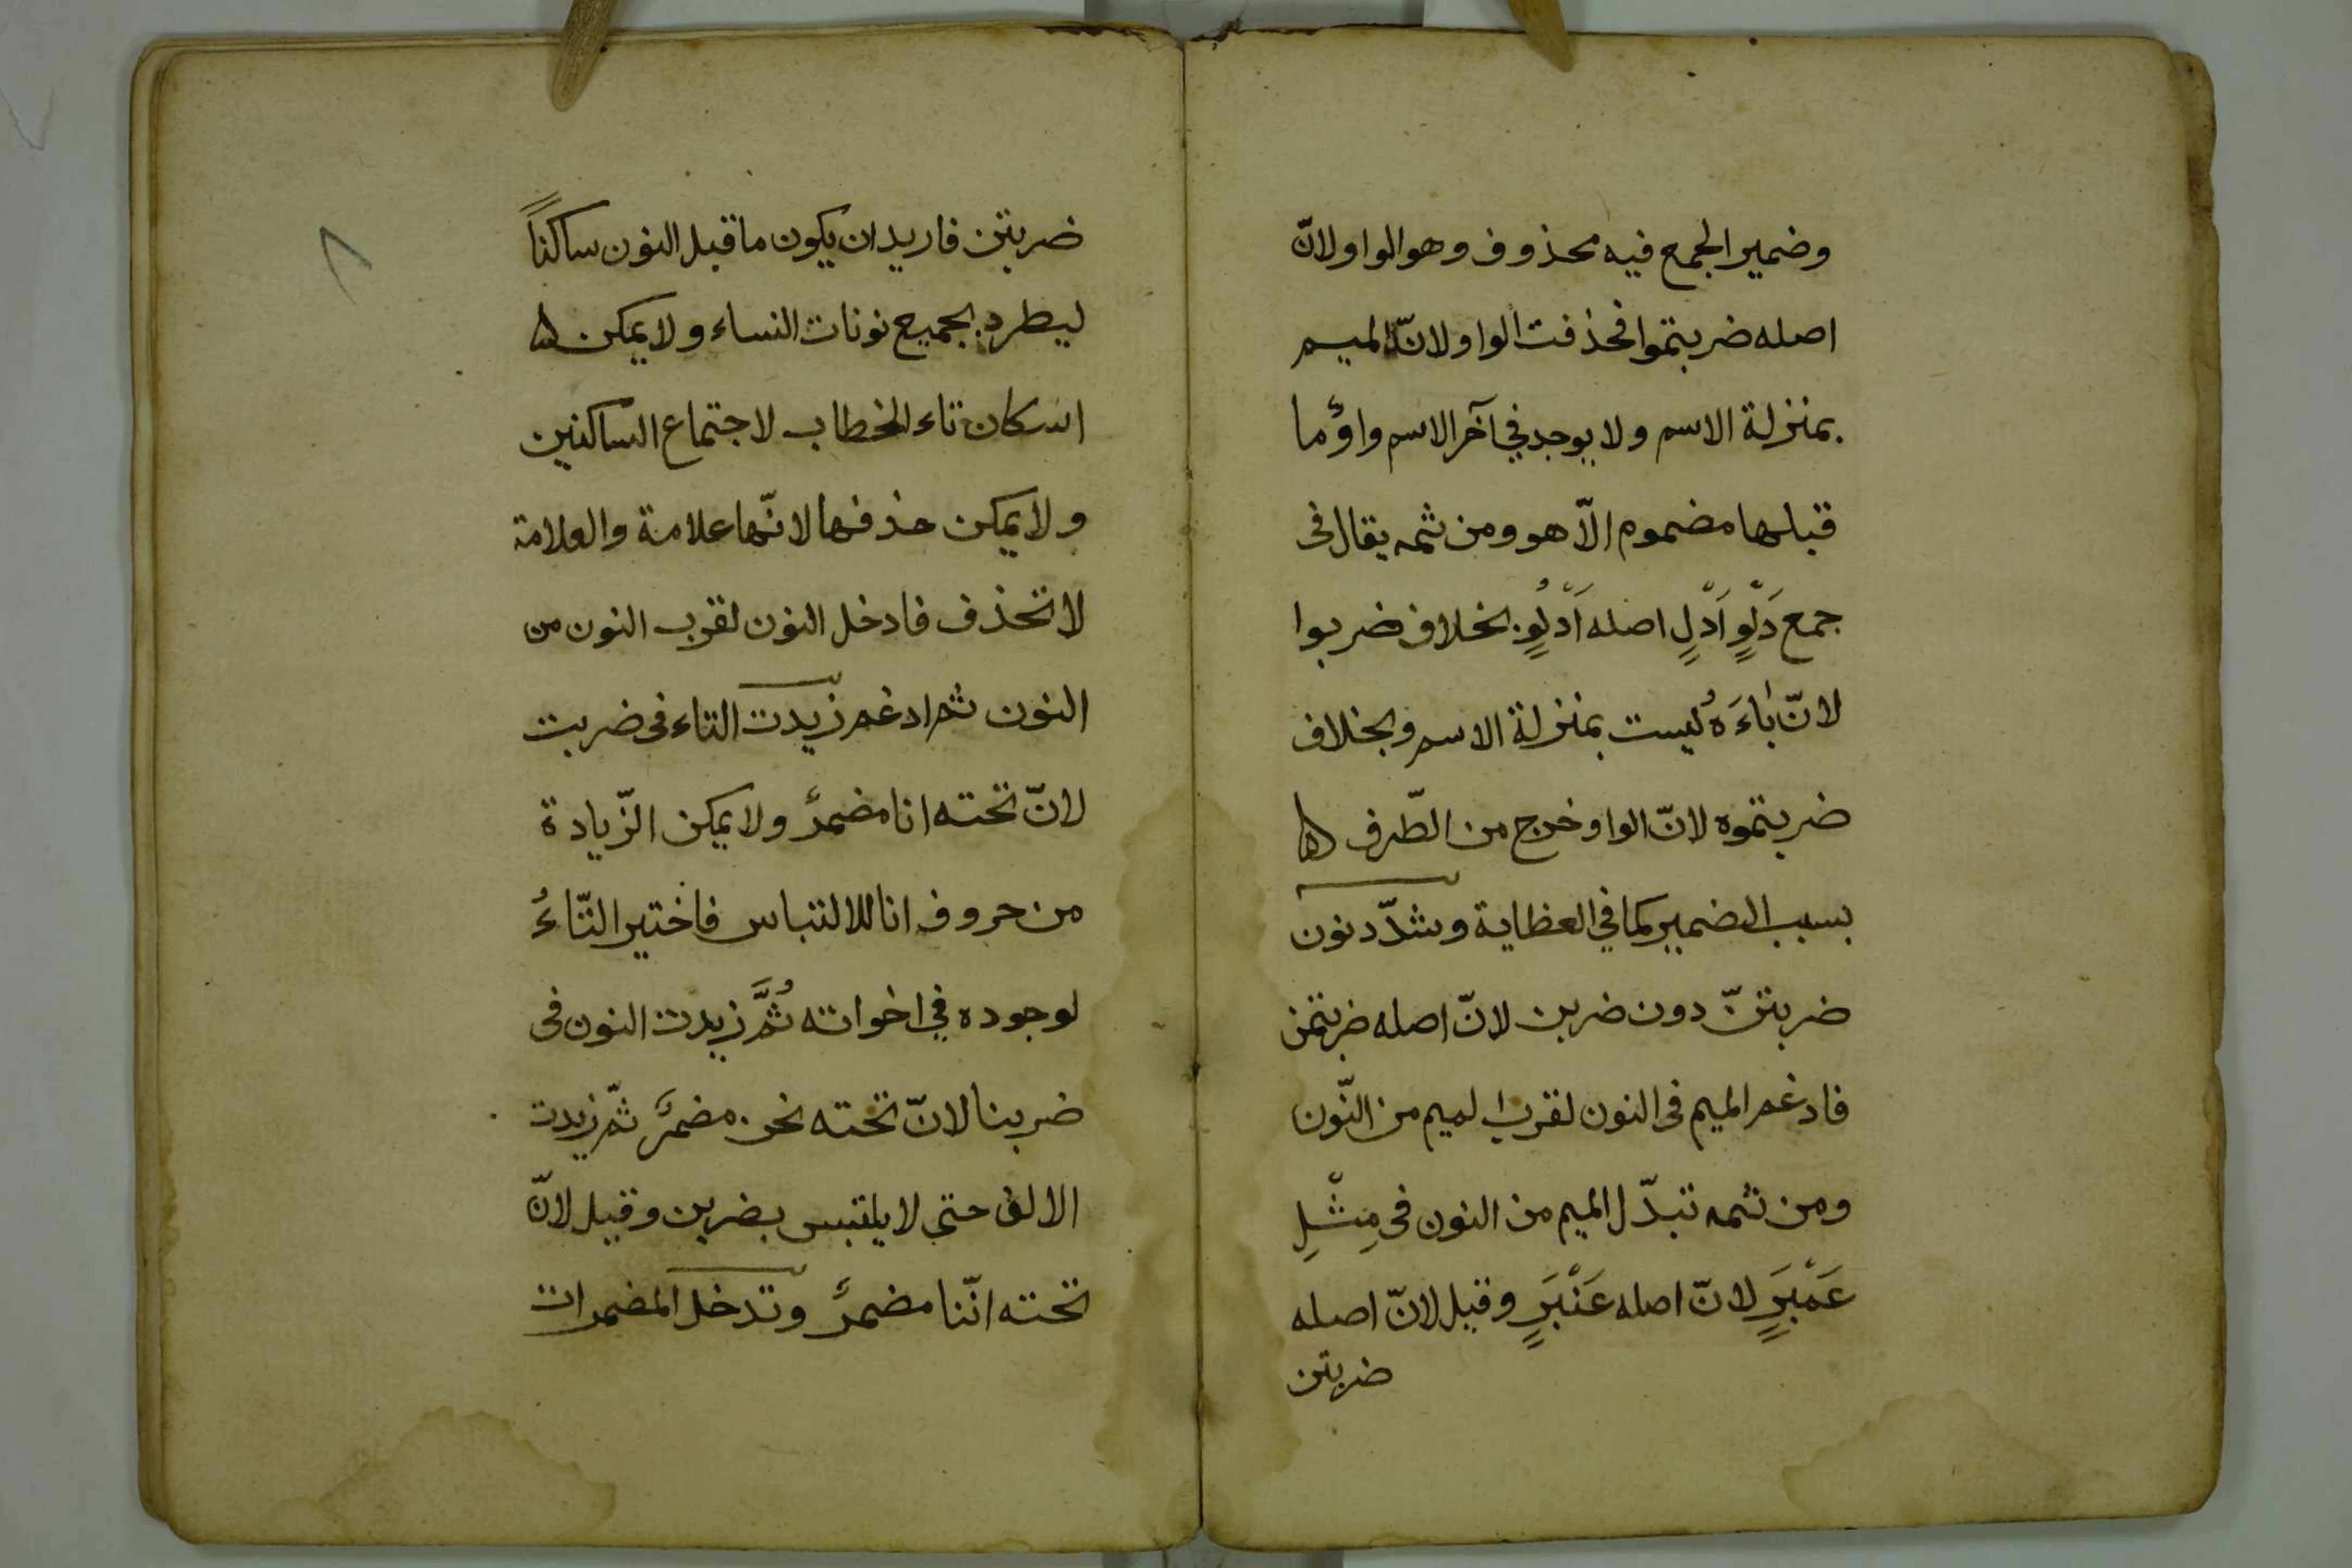 وضمير الجمع فيه محذوف وهو الواو ولانّ
اصله ضربتموا فحذفت الواو ولانّ الميم
بمنزلة الاسم ولا يوجد في آخر الاسم واوٌ ما
قبلها مضموم الّا هو ومن ثمه يقال فى
جمع دَلْوٍ اَدْلٍ اصله اَدْلُوٍ بخلاف ضربوا
لانّ باءَهُ ليست بمنزلة الاسم وبخلاف
ضربتموه لانّ الواو خرج من الطّرف
بسبب الضمير كما في العظاية وشدّد نون
ضربتنّ دون ضربن لانّ اصله ضربتمن
فادغم الميم فى النون لقرب الميم من النّون
ومن ثمه تبدّل الميم من النون فى مِثْلِ
عَمْبَرٍ لانّ اصله عَنْبَرٍ وقيل لانّ اصله
ضربتن
٨
ضربتن فاريد ان يكون ما قبل النون ساكناً
ليطرد بجميع نونات النساء ولا يمكن
اسكان تاء الخطاب لاجتماع الساكنين
ولا يمكن حذفها لانّها علامة والعلامة
لا تحذف فادخل النون لقرب النون من
النون ثم ادغم زيدت التاء فى ضربت
لانّ تحته انا مضمرٌ ولا يمكن الزّيادة
من حروف انا للالتباس فاختير التّاءُ
لوجوده في اخواته ثُمَّ زيدت النون فى
ضربنا لانّ تحته نحن مضمرٌ ثمّ زيدت
الالف حتى لا يلتبس بضربن وقيل لانّ
تحته انّنا مضمرٌ وتدخل المضمرات